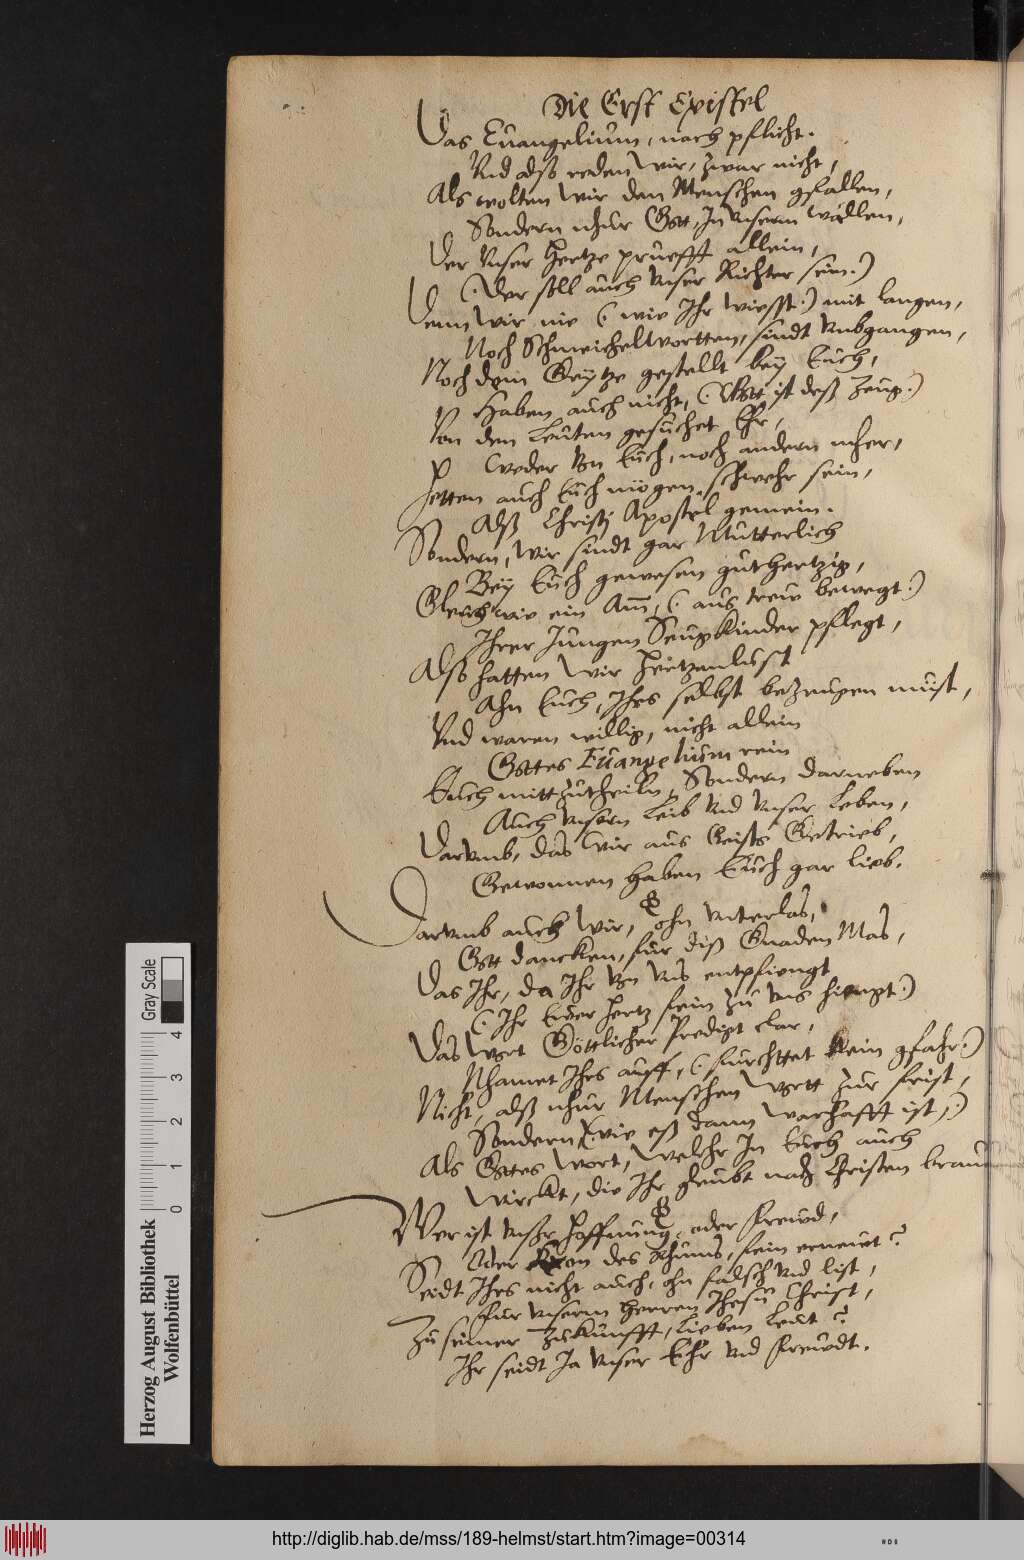 Die Erst Epistel
Das Euangelium, nach pflicht.
Vnd also reden wir, zwar nicht,
Als wolten wir den Menschen gfallen,
Sondern nhur Gott, In vnserm wallen,
Der vnser Hertze prüefft allein,
(. Der soll auch vnser Richter sein.)
Denn wir nie (. wie Ihr wisst.) mit langen,
Noch Schmeichelwortten, sindt vmbgangen,
Noch dem Geytze gestellt bey Euch,
Haben auch nicht, (. Gott ist deß Zeug.)
Von den Leuten gesuchet Ehr,
Weder von Euch, noch andern mher,
Hetten auch Euch mögen schwehr sein,
Alß Christi Apostel gemein.
Sondern, wir sindt gar Mütterlich
Bey Euch gewesen guthertzig,
Gleich wie ein Am, (. aus trew bewegt.)
Ihrer Jungen Seugkinder pflegt,
Also hatten wir Hertzenlust
Ahn Euch, Ihrs selbst bezeugen müst,
Vnd waren willig, nicht allein
Gottes Euangelium rein
Euch mittzutheiln, Sondern darneben
Auch vnsern Leib vnd vnser Leben,
Darvmb, das wir aus Geists Getrieb,
Gewonnen haben Euch gar lieb.
Darvmb auch wir, ohn vnterlas,
Gott dancken, für diß Gnaden Mas,
Das Ihr, da Ihr von vns entpfiengt
(. Ihr Ewer Hertz fein zu vns hiengt.)
Das Wort Göttlicher Predigt clar,
Nhamet Ihrs auff, (. furchttet kein gfahr.)
Nicht, alß nhur Menschen Wortt zur frist,
Sondern (wie eß dann warhafft ist,.)
Als Gottes Wort, Welchs In Euch auch
Wirckt, die Ihr gleubt nach Christen brauch
Wer ist vnsr Hoffnung, oder frewd,
Oder Kron des Rhums, fein ernewt?
Seidt Ihrs nicht auch, ohn falsch vnd list,
für vnserm Herren Jhesu Christ,
Zu seiner Zukunfft, Lieben Leut?
Ihr seidt Ja vnser Ehr vnd frewdt.
Herzog August Bibliothek
Wolfenbüttel
0 1 2 3 4
Gray Scale
http://diglib.hab.de/mss/189-helmst/start.htm?image=00314